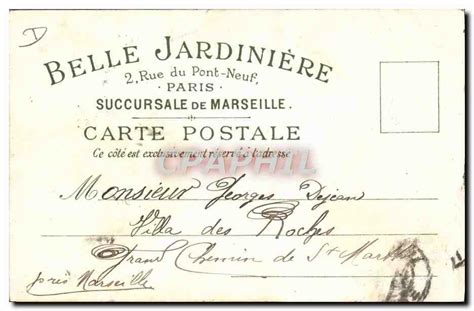 D
BELLE JARDINIÈRE
2, Rue du Pont-Neuf,
PARIS
SUCCURSALE DE MARSEILLE.
CARTE POSTALE
Ce côté est exclusivement réservé à l'adresse
CPAPHIL
Monsieur Georges Dejean
Villa des Roches
Grand Chemin de St
près Marseille